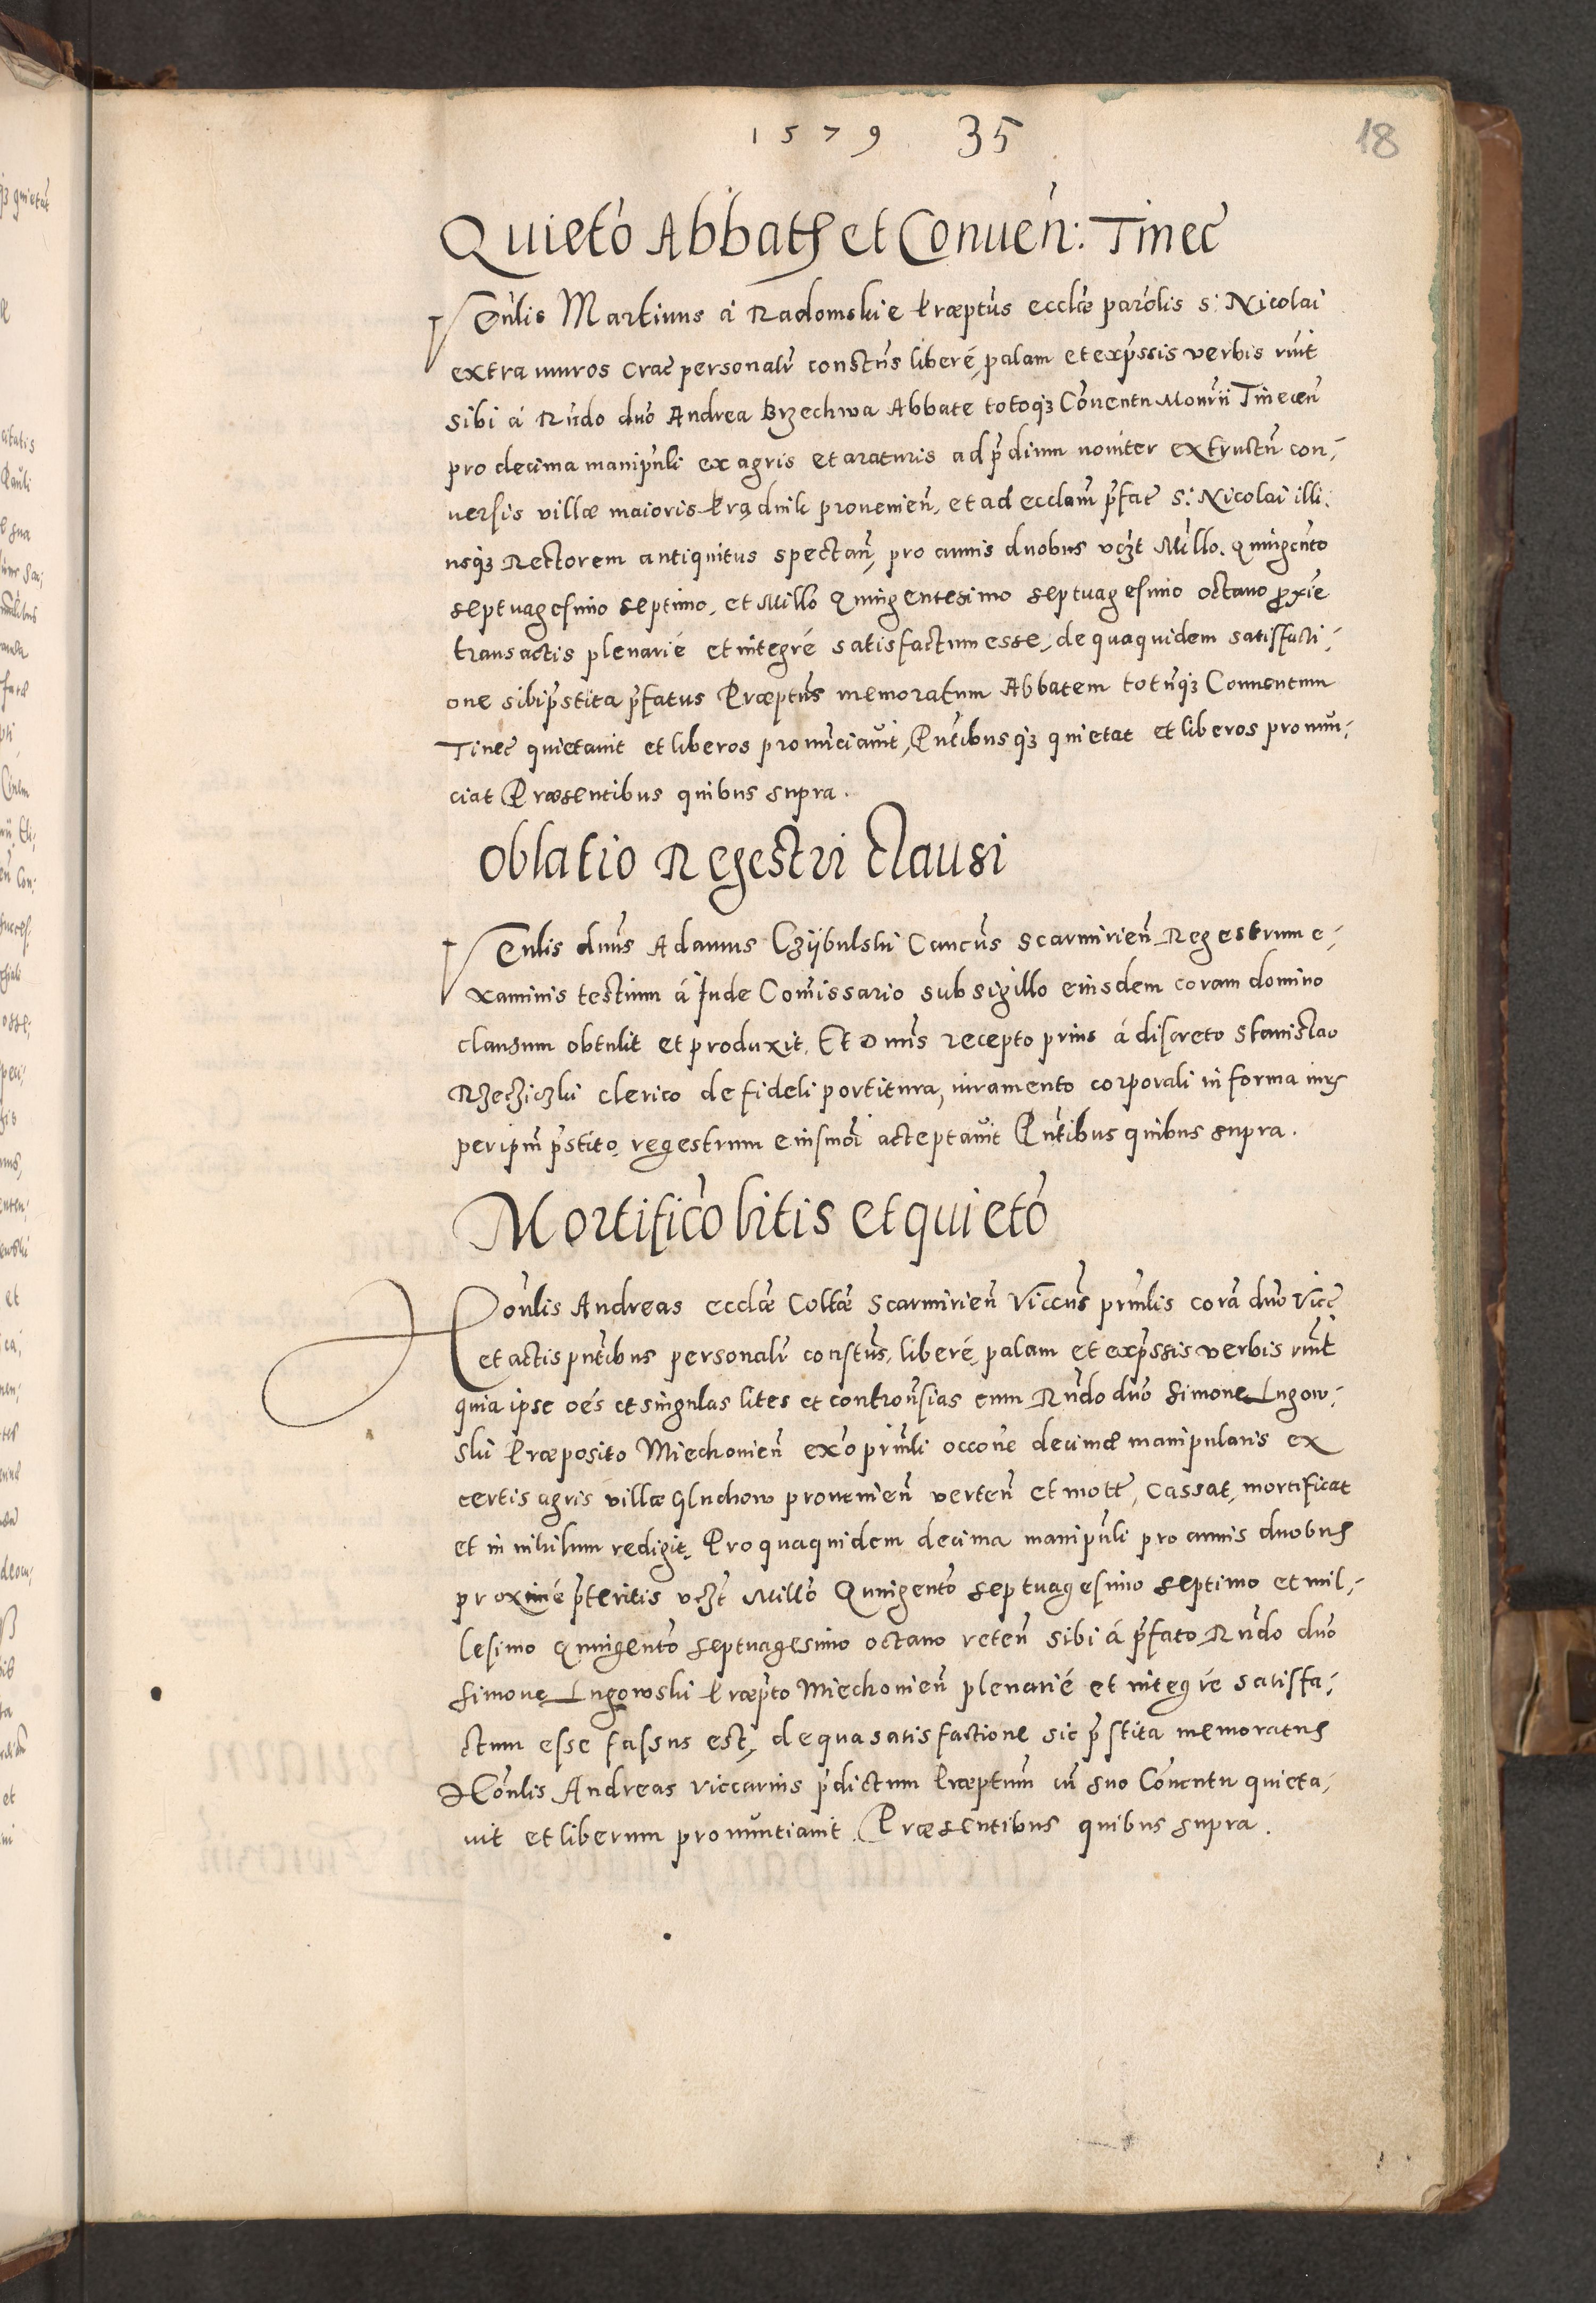 1579 35
18
Quieto Abbatis et Conuen: Tinec
Venlis Martinus a Radomskie Præptus ecclæ parolis s: Nicolai
extra muros Crac personalr constens liberé, palam et exprssis verbis rnit
sibi á Rndo dno Andrea Brzechwa Abbate totoq3 Conentu Monrii Tinecen
pro decima manipuli ex agris et araturis ad prdium nouiter extructu con-
uersis villæ maioris Prądnik prouenien, et ad ecclam prfat s: Nicolai illi:
usq3 Rectorem antiquitus spectan, pro annis duobus vcz3t Millo. Quingento
septuagesimo septimo, et Millo Quingentesimo septuagesimo octauo proxie
transactis plenarié et integré satisfactum esse, de qua quidem satisfacti-
one sibi prstita prfatus Præptus memoratum Abbatem totuq3 Conuentum
Tinec quietauit et liberos pronunciauit, Pntibusq3 quietat et liberos pronun-
ciat Præsentibus quibus supra.
Oblatio Regestri Clausi
Venlis dnus Adamus Czijbulski Cancus Scarmirien Regestrum e-
xaminis testium á Jnde Comissario sub sigillo eiusdem coram domino
clausum obtulit et produxit. Et Dnus recepto prius á discreto Stanislao
Rzecziczki clerico de fideli portitura, iuramento corporali in forma iuris
per ipm prstito, regestrum eiusmoi acceptauit Pntibus quibus supra.
Mortifico litis et quieto
Honlis Andreas ecclæ Coltæ Scarmirien Viccus prnlis cora dno Vicc
et actis pntibus personalr constus, liberé, palam et exprssis verbis rnit
quia ipse oés et singulas lites et controursias cum Rndo dno Simone Lugow-
ski Præposito Miechouien exo prinli occone decimæ manipularis ex
certis agris villæ Gluchow prouenien verten et mott, cassat, mortificat
et in nihilum redigit. Pro qua quidem decima manipuli pro annis duobus
proximé prteritis vcz3t Millo Quingento septuagesimo septimo et mil-
lesimo Quingento septuagesimo octauo reten sibi á prfato Rndo dno
Simone Lugowski Præpto Miechouien plenarié et integré satisfa-
ctum esse fassus est, de qua satisfactione sic prstita memoratus
Honlis Andreas viccarius prdictum Præptum cu suo Conentu quieta-
uit et liberum pronuntiauit. Præsentibus quibus supra.